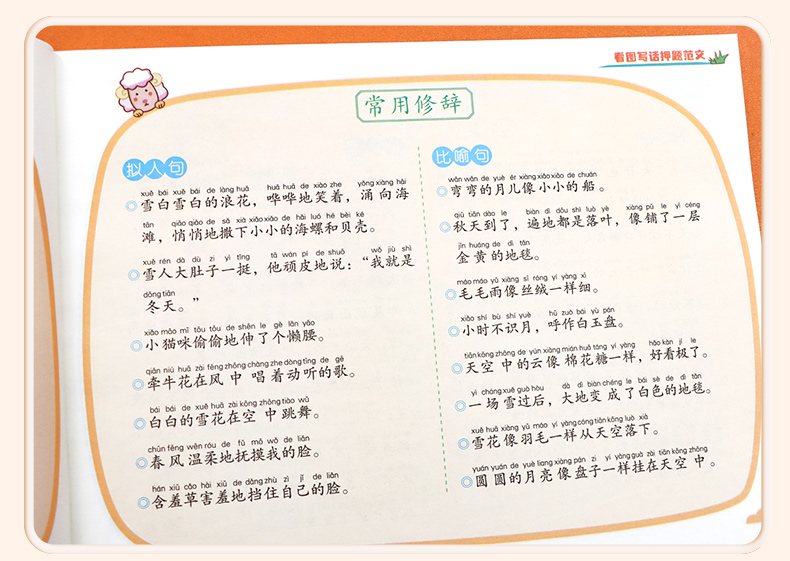 看图写话押题范文
常用修辞
拟人句
xuě bái xuě bái de làng huā huā huā de xiào zhe yǒng xiàng hǎi
雪白雪白的浪花，哗哗地笑着，涌向海
tān qiāo qiāo de sǎ xià xiǎo xiǎo de hǎi luó hé bèi ké
滩，悄悄地撒下小小的海螺和贝壳。
xuě rén dà dù zi yì tǐng tā wán pí de shuō wǒ jiù shì
雪人大肚子一挺，他顽皮地说：“我就是
dōng tiān
冬天。”
xiǎo māo mī tōu tōu de shēn le gè lǎn yāo
小猫咪偷偷地伸了个懒腰。
qiān niú huā zài fēng zhōng chàng zhe dòng tīng de gē
牵牛花在风中唱着动听的歌。
bái bái de xuě huā zài kōng zhōng tiào wǔ
白白的雪花在空中跳舞。
chūn fēng wēn róu de fǔ mō wǒ de liǎn
春风温柔地抚摸我的脸。
hán xiū cǎo hài xiū de dǎng zhù zì jǐ de liǎn
含羞草害羞地挡住自己的脸。
比喻句
wān wān de yuè ér xiàng xiǎo xiǎo de chuán
弯弯的月儿像小小的船。
qiū tiān dào le biàn dì dōu shì luò yè xiàng pū le yì céng
秋天到了，遍地都是落叶，像铺了一层
jīn huáng de dì tǎn
金黄的地毯。
máo máo yǔ xiàng sī róng yí yàng xì
毛毛雨像丝绒一样细。
xiǎo shí bù shí yuè hū zuò bái yù pán
小时不识月，呼作白玉盘。
tiān kōng zhōng de yún xiàng mián huā táng yí yàng hǎo kàn jí le
天空中的云像棉花糖一样，好看极了。
yì chǎng xuě guò hòu dà dì biàn chéng le bái sè de dì tǎn
一场雪过后，大地变成了白色的地毯。
xuě huā xiàng yǔ máo yí yàng cóng tiān kōng luò xià
雪花像羽毛一样从天空落下。
yuán yuán de yuè liang xiàng pán zi yí yàng guà zài tiān kōng zhōng
圆圆的月亮像盘子一样挂在天空中。